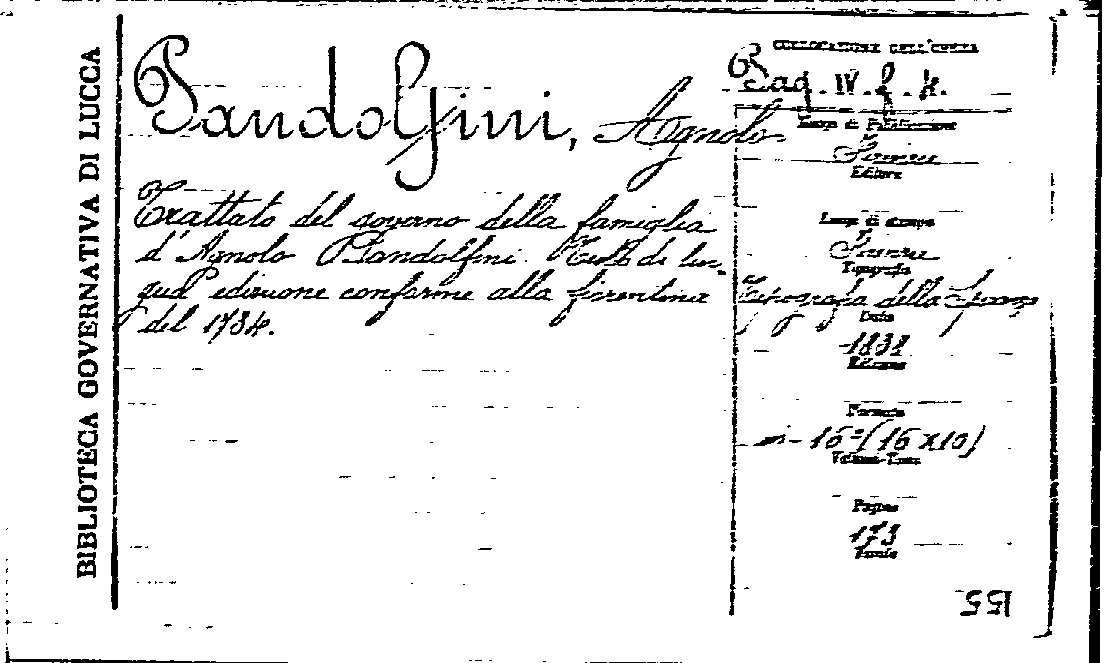 BIBLIOTECA GOVERNATIVA DI LUCCA
Pandolfini, Agnolo
Trattato del governo della famiglia
d'Agnolo Pandolfini. Testo di lin-
gua edizione conforme alla fiorentina
del 1734.
COLLOCAZIONE DELL'OPERA
Pag. IV. f. 4.
Luogo di Pubblicazione
Firenze
Editore
Luogo di stampa
Firenze
Tipografia
Tipografia della Speranza
Data
1831
Edizione
Formato
in-16°(16x10)
Volume-Tomo
Pagine
173
155